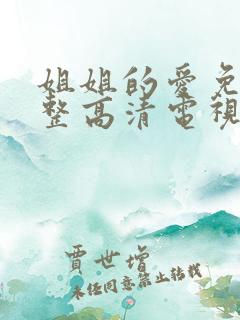 姐姐的愛免
整高清電視
賈世增
未经同意禁止转载